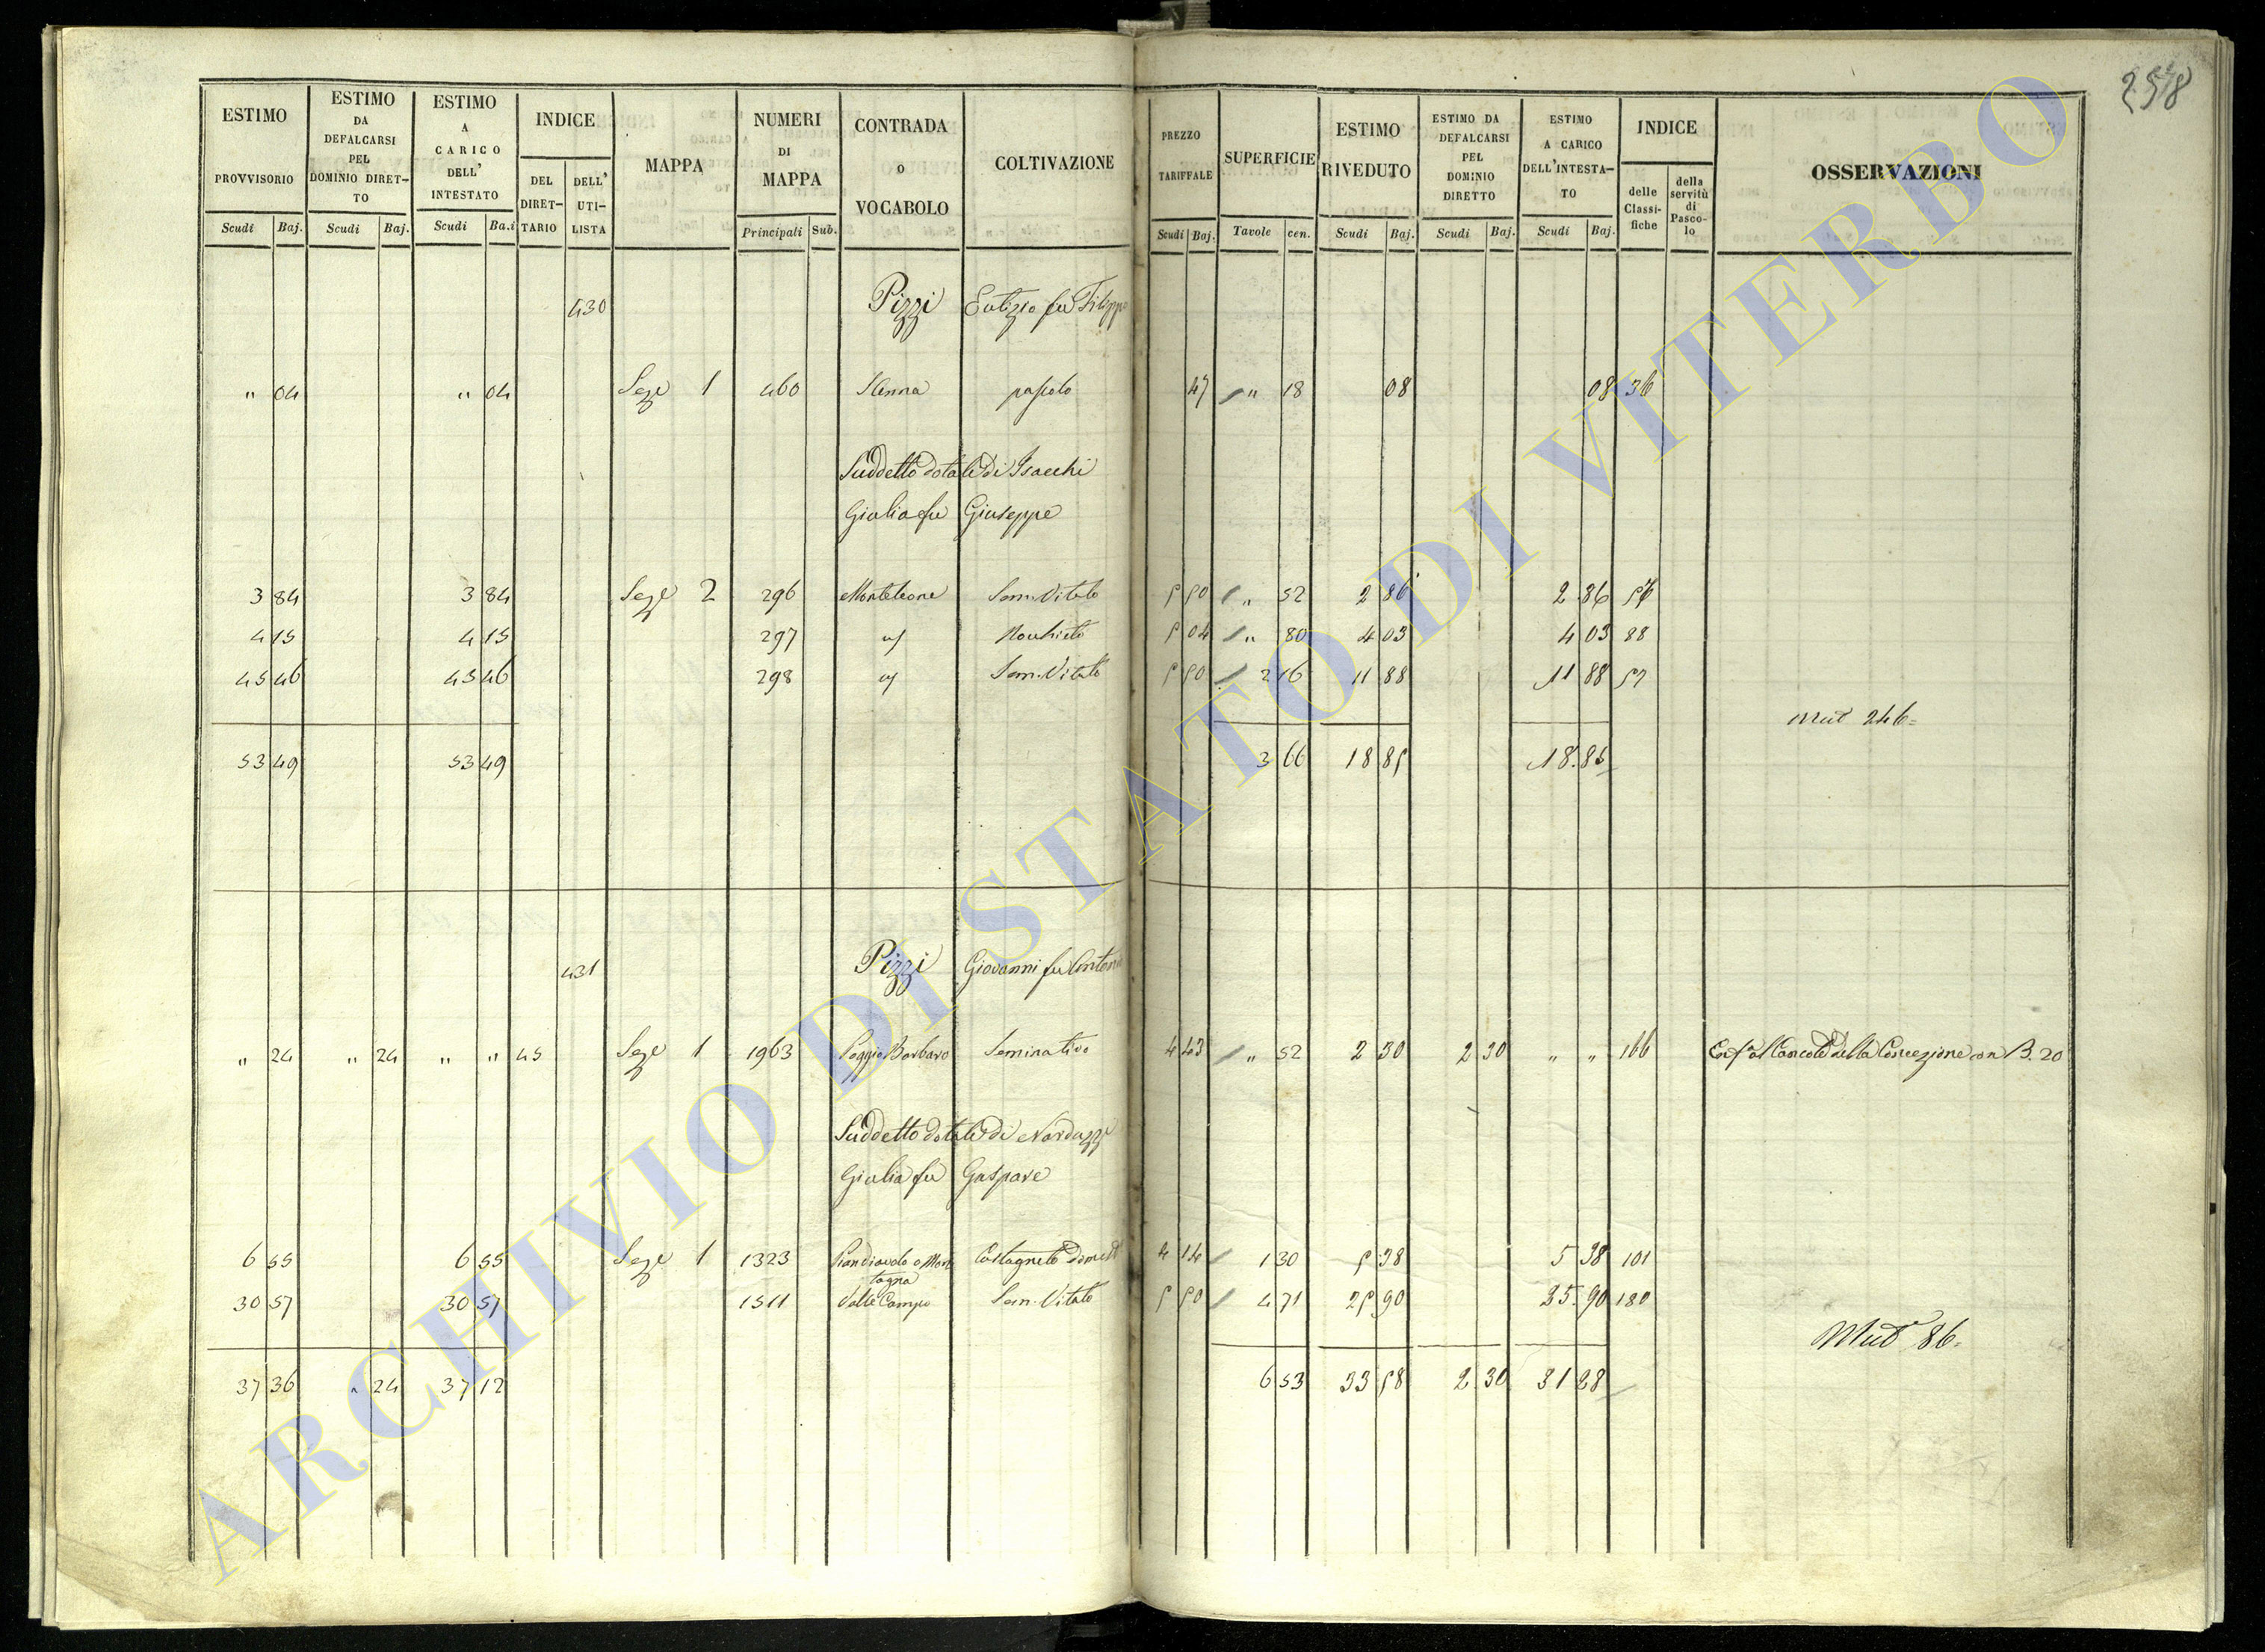 258
ESTIMO PROVVISORIO Scudi Baj.
ESTIMO DA DEFALCARSI PEL DOMINIO DIRET-TO Scudi Baj.
ESTIMO A CARICO DELL' INTESTATO Scudi Ba.i
INDICE DEL DIRET-TARIO DELL' UTI-LISTA
MAPPA
NUMERI DI MAPPA Principali Sub.
CONTRADA O VOCABOLO
COLTIVAZIONE
PREZZO TARIFFALE Scudi Baj.
SUPERFICIE Tavole cen.
ESTIMO RIVEDUTO Scudi Baj.
ESTIMO DA DEFALCARSI PEL DOMINIO DIRETTO Scudi Baj.
ESTIMO A CARICO DELL'INTESTA-TO Scudi Baj.
INDICE delle Classi-fiche della servitù di Pasco-lo
OSSERVAZIONI
430 Pizzi Eutizio fu Filippo
" 04 " 04 Seze 1 460 pascolo 47 " 18 08 08 36
Suddetto dotale di Isacchi
Giulia fu Giuseppe
3 84 3 84 Seze 2 296 Monteleone Sem. Vitato 5 50 " 52 2 86 2 86
4 15 4 15 297 5 04 " 80 4 03 4 03 88
45 46 45 46 298 Sem. Vitato 5 50 2 16 11 88 11 88 57
Mut 246=
53 49 53 49 3 66 18 85 18.85
431 Pizzi Giovanni fu Antonio
" 24 " 24 " " 45 Seze 1 1963 Poggio Barbaro Seminativo 4 43 " 52 2 30 2 30 " " 166 della Concezione con B. 20
Suddetto dotale di Narduzzi
Giulia fu Gaspare
6 55 6 55 Seze 1 1323 Castagneto domest 4 14 1 30 5 38 5 38 101
tagna
30 57 30 57 1511 Valle Campo Sem. Vitato 5 50 4 71 25 90 25.90 180
Mut 86=
37 36 " 24 37 12 6 53 33 58 2 30 31 28
ARCHIVIO DI STATO DI VITERBO